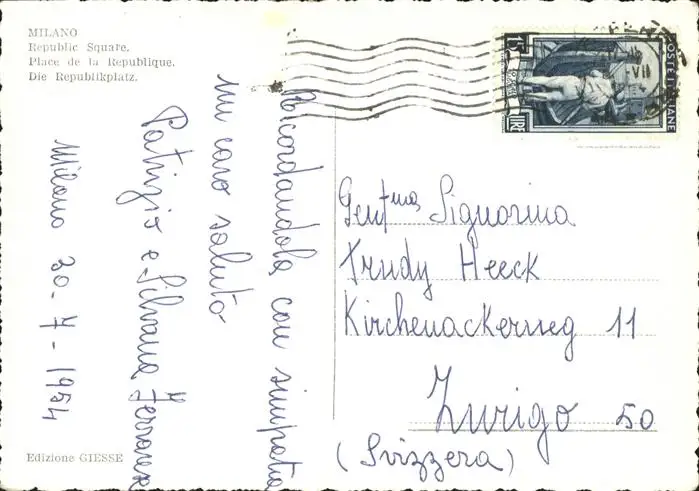 MILANO
Republic Square.
Place de la Republique.
Die Republikplatz.
Ricordandola con simpatia
un caro saluto
Patrizio e Silvana
Milano 30-7-1954
Edizione GIESSE
15 LIRE
POSTE ITALIANE
VII
Gent.mas Signorina
Trudy Heeck
Kirchenackerweg 11
Zurigo 50
(Svizzera)